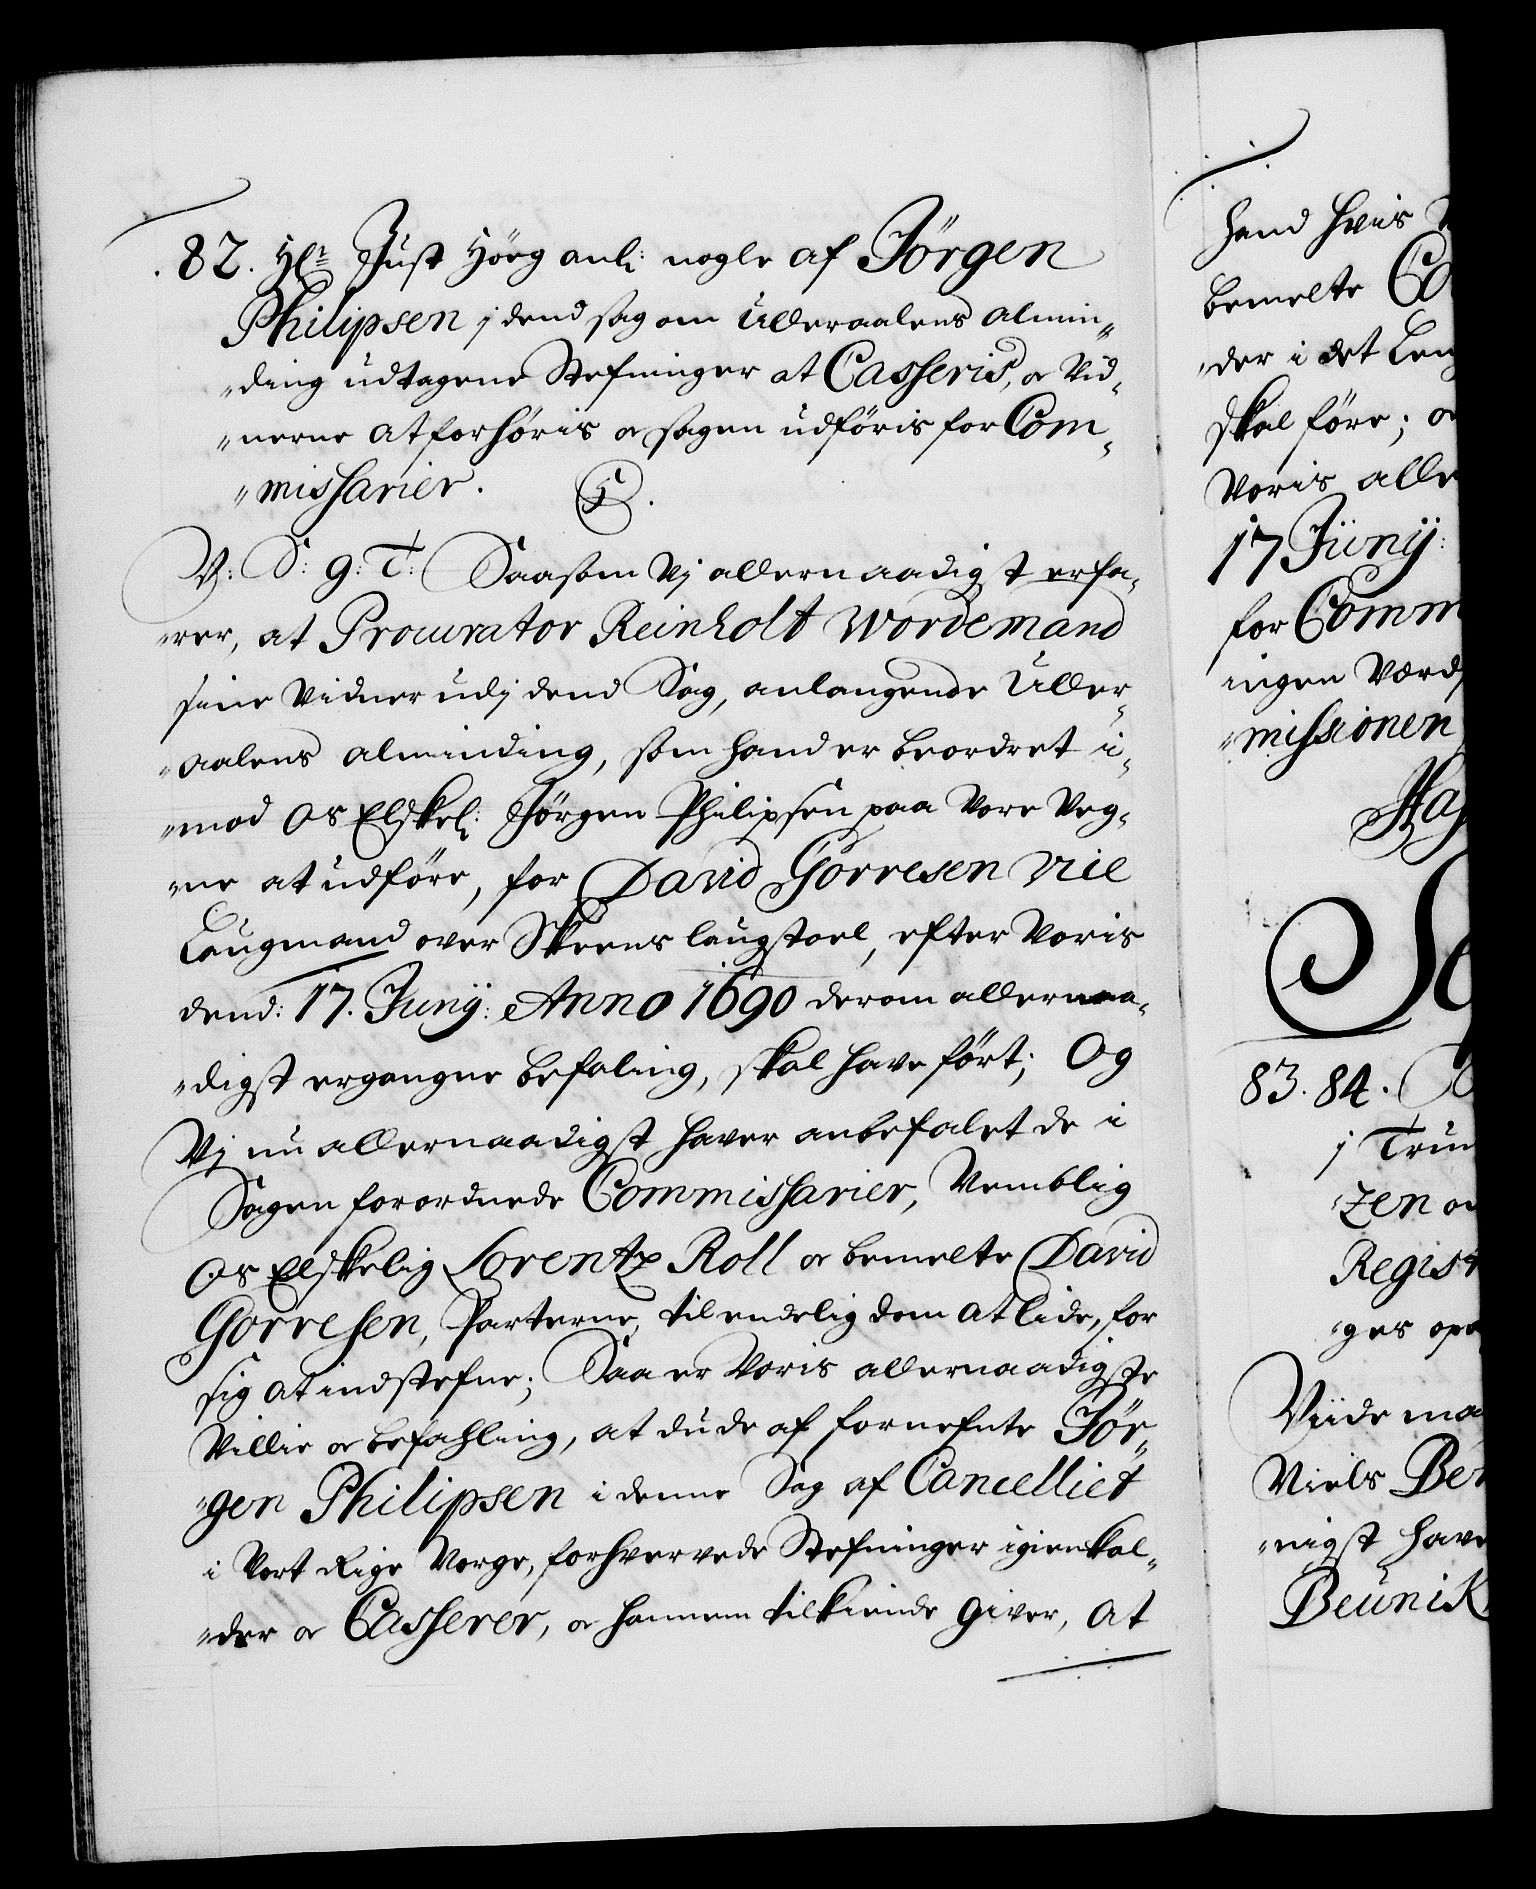 82. Hr: Just Høeg anl: nogle af Jörgen
Philipsen j dend sag om Ulleraalens Almin„
„ding udtagene Stefninger at Casseris, oc Vid„
„nerne at forhöris oc sagen udföris for Com„
„missarier. C5.
V: S: g: T: Saasom Vj allernaadigst erfa„
„rer, at Procurator Reinholt Wordemand
sine Vidner udj dend Sag, anlangende Uller„
„aalens alminding, som hand er beordret i„
„mod Os Elskel: Jörgen Philipsen paa Vore Veg„
„ne at udföre, for David Gorresen Vice
Laugmand over Skeens laugstoel, efter Voris
dend: 17. Junij: Anno 1690 derom allernaa„
„digst ergangne befaling, skal have fört; Og
Vj nu allernaadigst haver anbefalet de i
Sagen forordnede Commissarier, Nemblig
Os Elskelig Lorentz Roll oc bemelte David
Gorresen, Parterne, til endelig dom at lide, for
sig at indstefne; Saa er Voris allernaadigste
Villie oc befahling, at du de af fornefnte Jör„
„gen Philipsen i denne Sag af Cancelliet
i Vort Rige Norge, forhvervede Stefninger igienkal„
„der oc Casserer, oc hannem tilkiende giver, at
hand hvis
bemelte
„der i det
skal före; oc
Voris alle
17 Junij:
for Comm
ingen Værds
„missionen
83. 84.
j Trun
zen oc
Regist
„ges
Viide ma
Niels Ben
„nigst have
Beunik